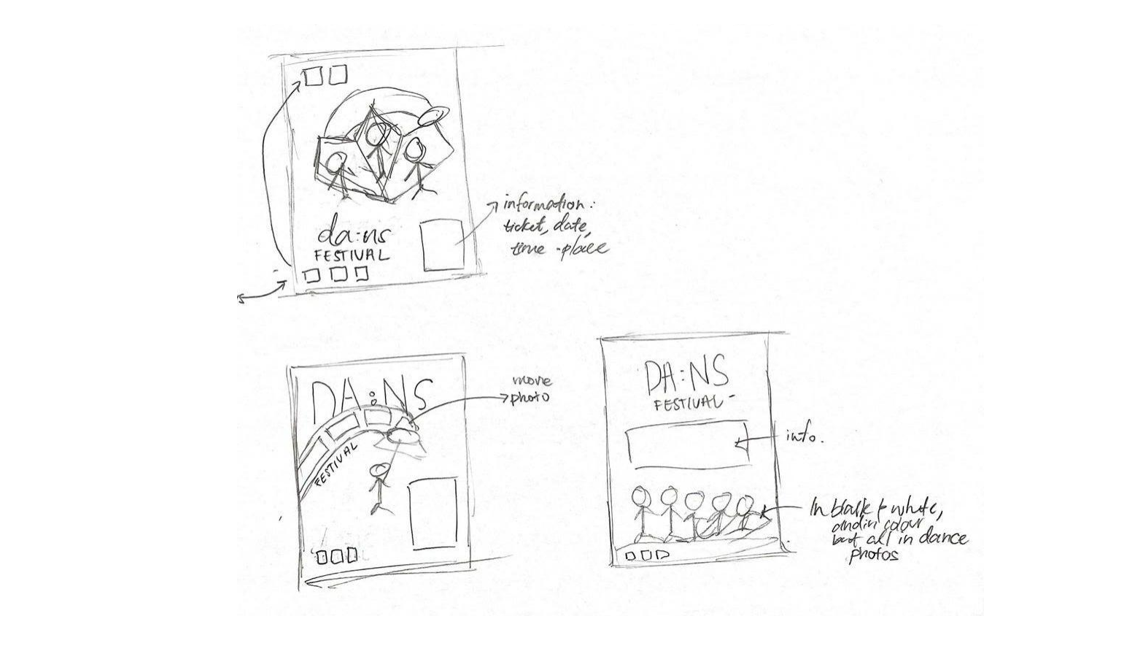 da:ns
FESTIVAL
information:
ticket, date,
time - place
DA:NS
FESTIVAL
move
photo
DA:NS
FESTIVAL-
info.
In black & white,
and in colour
but all in dance
photos